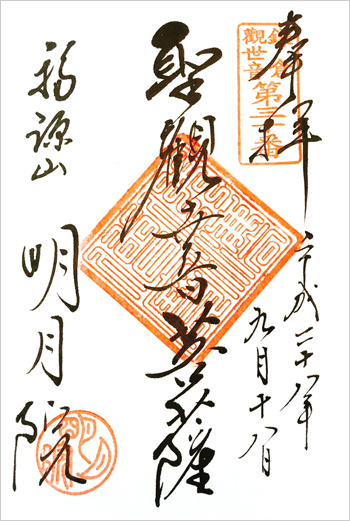 奉拝
鎌倉
觀世音
第三十番
平成二十八年
九月十八日
聖觀世音菩薩
福源山
明月院